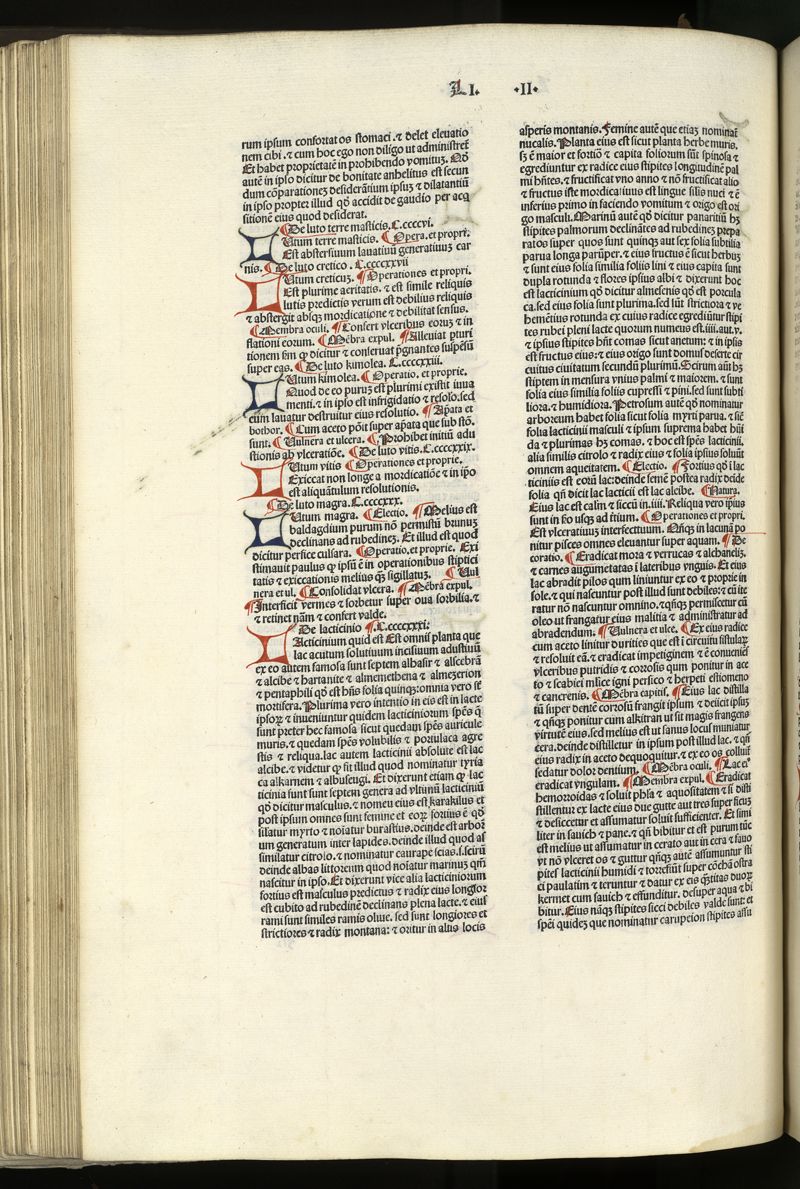 LI. II.
rum ipsum confortat os stomaci .⁊ delet eleuatio
nem cibi .⁊ cum hoc ego non diligo ut administret̄
Et habet proprietatē in prohibendo vomitum. Nō
autē in ipso dicitur de bonitate anhelitus est secun
dum cōparationez desiderātium ipsuz ⁊ dilatantiū
in ipso propter illud qd̄ accidit de gaudio per acq̄
sitionē eius quod desiderat.
¶ De luto terre masticis. C.ccccvi.
LUtum terre masticis. ¶ Opera. et propri.
Est abstersiuum lauatiuū generatiuuz car
nis. ¶ De luto cretico . C.ccccxxvii
LUtum creticuz. ¶ Operationes et propri.
Est plurime aeritatis . ⁊ est simile reliquis
lutis predictis verum est debilius reliquis
⁊ abstergit absqz mordicatione ⁊ debilitat sensus.
¶ Membra oculi. ¶ Confert vlceribus eoruz ⁊ in
flationi eorum. ¶ Mēbra expul. ¶ Alleuiat pturi
tionem sim ꝙ dicitur ⁊ conseruat p̄gnantes suspēsū
super eas. ¶ De luto kimolea. C.ccccxxiii.
LUtum kimolea. ¶ Operatio. et proprie.
Quod de eo puruz est plurimi existit iuua
menti. ⁊ in ipso est infrigidatio ⁊ resolo. sed
cum lauatur destruitur eius resolutio. ¶ Apata et
botbor. ¶ Cum aceto pōit super ap̄ata que sub stō.
sunt. ¶ Uulnera et ulcera. ¶ Prohibet initiū adu
stionis ab vlceratiōe. ¶ De luto vitis. C.ccccxxix.
LUtum vitis ¶ Operationes et proprie.
Exiccat non longe a mordicatiōe ⁊ in ip̄o
est aliquātulum resolutionis.
¶ De luto magra. C.ccccxxx.
LUtum magra. ¶ Electio. ¶ Melius est
baldagdium purum nō permistū brunuz
declinans ad rubedinez. Et illud est quod
dicitur perfice culsara. ¶ Operatio. et proprie. Exi
stimauit paulus ꝙ ipsū ē in operationibus stiptici
tatis ⁊ exiccationis melius qz sigillatuz. ¶ Uul
nera et ul. ¶ Consolidat vlcera. ¶ Mēbra expul.
¶ Interficit vermes ⁊ sorbetur super oua sorbilia. ⁊
⁊ retinet nām ⁊ confert valde.
¶ De lacticinio . ¶ C.ccccxxxi:
LActicinium quid est Est omnis planta que
lac acutum solutiuum incisiuum adustiuū
ex eo autem famosa sunt septem alhasir ⁊ alscebrā
⁊ alcibe ⁊ bartanite ⁊ almemethena ⁊ almezerion
⁊ pentaphili qd̄ est hn̄s folia quinqz: omnia vero st̄
mortifera. Plurima vero intentio in eis est in lacte
ipsoꝝ ⁊ inueniuntur quidem lacticiniorum spēs q̄
sunt preter hec famosa sicut quedam spēs auricule
muris. ⁊ quedam spēs volubilis ⁊ portulaca agre
stis ⁊ reliqua. lac autem lacticinii absolute est lac
alcibe. ⁊ videtur ꝙ sit illud quod nominatur tyria
ca alkarnem ⁊ albuseugi. Et dixerunt etiam ꝙ lac
ticinia sunt sunt septem genera ad vltimū lacticiniū
qd̄ dicitur masculus. ⁊ nomeu eius est karakilus et
post ipsum omnes sunt femine et eoꝝ fortius ē qd̄
silatur myrto ⁊ noīatur burastius. deinde est arbor
um generatum inter lapides. deinde illud quod as
similatur citrolo. ⁊ nominatur caurape icias. i. scirū
deinde albas littoreum quod noīatur marinuz qm̄
nascitur in ipso. Et dixerunt vice alia lacticiniorum
fortius est masculus predictus ⁊ radix eius longior
est cubito ad rubedinē declinans plena lacte. ⁊ eius
rami sunt similes ramis oliue. sed sunt longiores et
strictiores ⁊ radix montana: ⁊ oritur in altis locis
asperis montanis. Femine autē que etiaz nominant̄
nucalis. Planta eius est sicut planta herbe muris.
sz ē maior et fortiō ⁊ capita foliorum sūt spinosa ⁊
egrediuntur ex radice eius stipites longitudinē pal
mi hn̄tes. ⁊ fructificat vno anno ⁊ nō fructificat alio
⁊ fructus iste mordicatiuus est lingue silis nuci ⁊ ē
inferius primo in faciendo vomitum ⁊ origo est ori
go masculi. Marinū autē qd̄ dicitur panaritiū hz
stipites palmorum declinātes ad rubedinez prepa
ratos super quos sunt quinqz aut sex folia subtilia
parua longa parūper. ⁊ eius fructus ē sicut herbuz
⁊ sunt eius folia similia foliis lini ⁊ eius capita sunt
dupla rotunda ⁊ flores ipsius albi ⁊ dixerunt hoc
est lacticinium qd̄ dicitur almesenis qd̄ est porcula
ca. sed eius folia sunt plurima. sed sūt strictiora ⁊ ve
hemētius rotunda ex cuius radice egrediūtur stipi
tes rubei pleni lacte quorum numerus est .iiii. aut. v.
⁊ ipsius stipites hn̄t comas sicut anetum: ⁊ in ipsis
est fructus eius: ⁊ eius origo sunt domus deserte cir
cuitus ciuitatum secundū plurimū. Scirum aūt hz
stiptem in mensura vnius palmi ⁊ maiorem. ⁊ sunt
folia eius similia foliis cupressi ⁊ pini. sed sunt subti
liora. ⁊ humidiora. Petrosum autē qd̄ nominatur
arboreum habet folia sicut folia myrti parua. ⁊ sit̄
folia lacticinii masculi ⁊ ipsum suprema habet hūi
da ⁊ plurimas hz comas. ⁊ hoc est spēs lacticinii.
alia similis citrolo ⁊ radix eius ⁊ folia ipsius soluūt
omnem aqueitatem. ¶ Electio. ¶ Fortius qd̄ ī lac
ticiniis est eorū lac: deinde semē postea radix deīde
folia qn̄ dicit lac lacticii est lac alcibe. ¶ Natura.
Eius lac est calm̄ ⁊ siccū in .iiii. Reliqua vero ip̄ius
sunt in seo usqz ad trium. ¶ Operationes et propri.
Est vlceratiuuz interfectiuum. Nā̄qz in lacunā po
nitur pisces omnes eleuantur super aquam. ¶ De
coratio. ¶ Eradicat mora ⁊ verrucas ⁊ alchandiz.
⁊ carnes augumētatas ī lateribus vnguis. Et eius
lac abradit pilos qum liniuntur ex eo ⁊ proprie in
sole. ⁊ qui nascuntur post illud sunt debiles: ⁊ cū ite
ratur nō nascuntur omnino. ⁊ qn̄qz permiscetur cū
oleo ut frangatur eius malitia ⁊ administratur ad
abradendum. ¶ Uulnera et ulce. ¶ Ex eius radice
cum aceto linitur durities que est ī circuitu fistulaꝝ
⁊ resoluit eā. ⁊ eradicat impetiginem ⁊ ē conueniēs
vlceribus putridis ⁊ corrosis qum ponitur in ace
to ⁊ scabiei mlice igni persico ⁊ herpeti estiomeno
⁊ cancrenis. ¶ Mēbra capitis. ¶ Eius lac distilla
tū super dentē corrosū frangit ipsum ⁊ deiicit ipsuz
⁊ qn̄qz ponitur cum alkitran ut sit magis frangens
virtutē eius. sed melius est ut sanus locus muniatur
cera. deinde distilletur in ipsum post illud lac. ⁊ qn̄
eius radix in aceto dequoquitur. ⁊ ex eo os colluit̄
sedatur dolor dentium. ¶ Mēbra oculi. ¶ Lac eiꝰ
eradicat vngulam. ¶ Membra expul. ¶ Eradicat
hemorroidas ⁊ soluit phl̄a ⁊ aquositatem ⁊ si disti
stillentur ex lacte eius due gutte aut tres super ficuz
⁊ desiccetur et assumatur soluit sufficienter. Et simi
liter in sauich ⁊ pane. ⁊ qn̄ bibitur et est purum tūc
est melius ut assumatur in cerato aut in cera ⁊ fauo
vt nō vlceret os ⁊ guttur qn̄qz autē assumuntur sti
pites lacticinii humidi ⁊ torrefiūt super cōchā ostra
ci paulatim ⁊ teruntur ⁊ datur ex eis q̄ntitas duoꝝ
kermet cum sauich ⁊ effunditur. desuper aqua ⁊ bi
bitur. Eius nāqz stipites sicci debiles valde sunt: et
spēi quidez que nominatur carupeion stipites assu